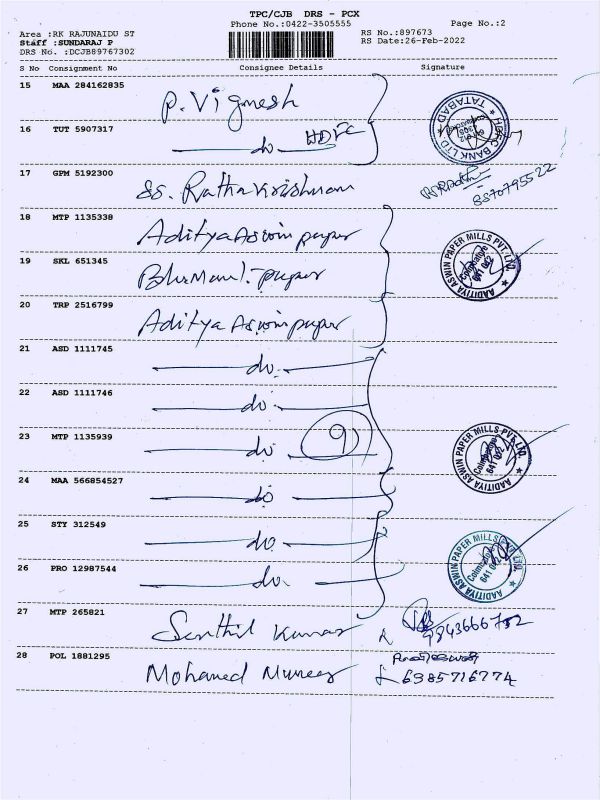 TPC/CJB DRS - PCX
Phone No.:0422-3505555
Page No.:2
Area :RK RAJUNAIDU ST
RS No.:897673
Staff :SUNDARAJ P
RS Date:26-Feb-2022
DRS No. :DCJB89767302
S No Consignment No Consignee Details Signature
15 MAA 284162835 P. Vignesh
16 TUT 5907317 do HDFC
HDFC BANK LTD TATABAD
17 GPM 5192300 SS. Rathakrishnan
8870795522
18 MTP 1135338 Aditya Aswin paper
AADITIYA ASWIN PAPER MILLS PVT. LTD. Coimbatore
19 SKL 651345 paper
20 TRP 2516799 Aditya Aswin paper
21 ASD 1111745 do
22 ASD 1111746 do
23 MTP 1135939 do 9
AADITIYA ASWIN PAPER MILLS PVT. LTD. Coimbatore
24 MAA 566854527 do
25 STY 312549 do
AADITIYA ASWIN PAPER MILLS PVT. LTD. Coimbatore
26 PRO 12987544 do
27 MTP 265821 Senthil Kumar
28 POL 1881295 Mohamed Muneer
6385716774